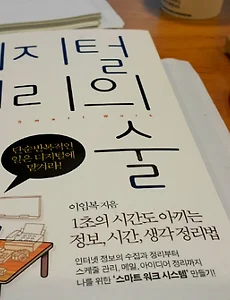 지털
리의
술
Smart Work
단순반복적인
일은 디지털에
맡겨라!
이임복 지음
1초의 시간도 아끼는
정보, 시간, 생각 정리법
인터넷 정보의 수집과 정리부터
스케줄 관리, 메일, 아이디어 정리까지
나를 위한 '스마트 워크 시스템' 만들기!